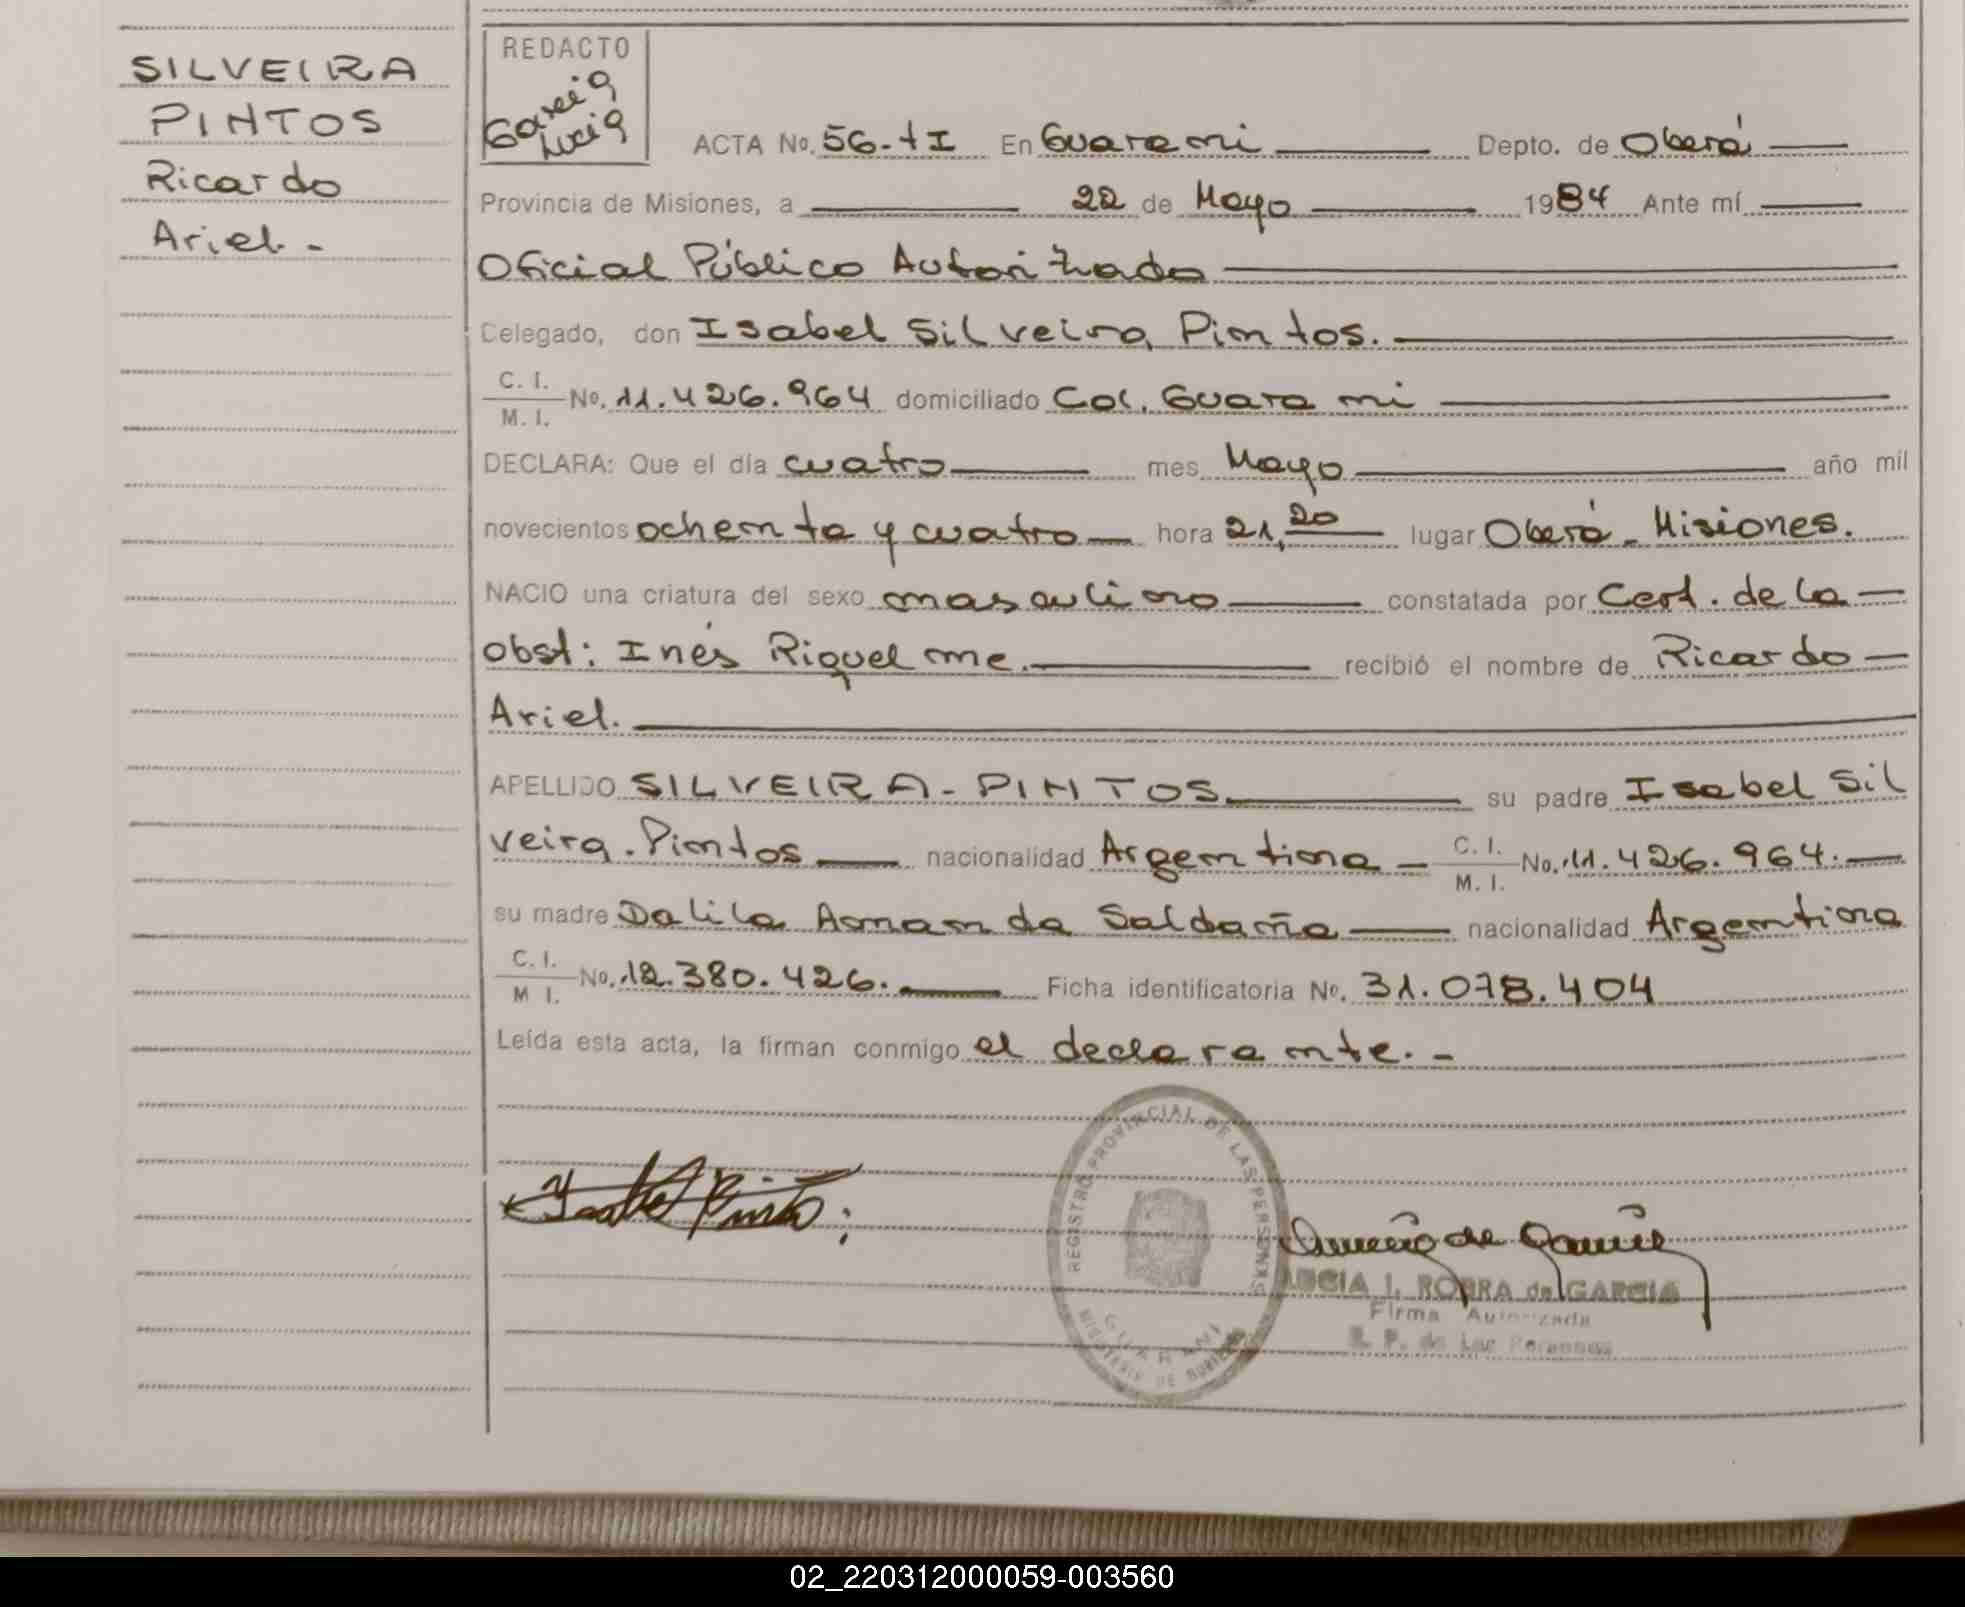 SILVEIRA
PINTOS
Ricardo
Ariel.-
REDACTO
Garcia
Lucia
ACTA No. 56-tI En Guarani Depto. de Oberá
Provincia de Misiones, a 22 de Mayo 1984 Ante mí
Oficial Público Autorizado
Celegado, don Isabel Silveira Pintos.
C. I.
M. I. No. 11.426.964 domiciliado Col. Guarani
DECLARA: Que el día cuatro mes Mayo año mil
novecientos ochenta y cuatro hora 21,20 lugar Oberá - Misiones.
NACIO una criatura del sexo masculino constatada por Cert. de la
obst: Inés Riquelme. recibió el nombre de Ricardo
Ariel.
APELLIDO SILVEIRA-PINTOS su padre Isabel Sil
veira. Pintos nacionalidad Argentina - C. I.
M. I. No. 11.426.964.
su madre Dalila Amanda Saldaña nacionalidad Argentina
C. I.
M I. No. 12.380.426. Ficha identificatoria No. 31.078.404
Leída esta acta, la firman conmigo el declarante.-
REGISTRO PROVINCIAL DE LAS PERSONAS
GUARANI
MINISTERIO DE GOBIERNO
Isabel Pintos
LUCIA I. ROBRA de GARCIA
Firma Autorizada
R. P. de Las Personas
02_220312000059-003560